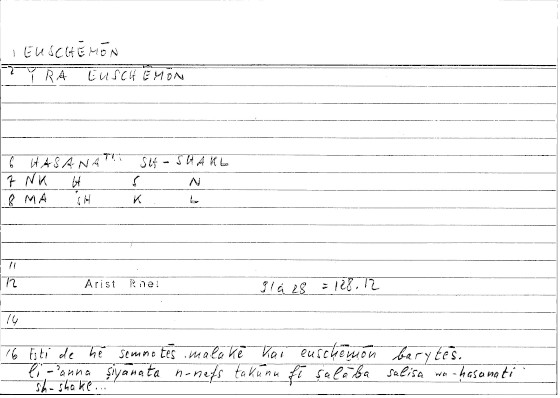 1 EUSCHĒMŌN
2 RA EUSCHĒMŌN
6 HASANATU SH-SHAKL
7 NK H S N
8 MA SH K L
11
12 Arist Rhet 91a28 = 128.12
14
16 Esti de hē semnotēs malakē kai euschēmōn barytēs.
li-'anna ṣiyānata n-nafs takūnu fī ṣalāba salisa wa-ḥasanati
sh-shakl...